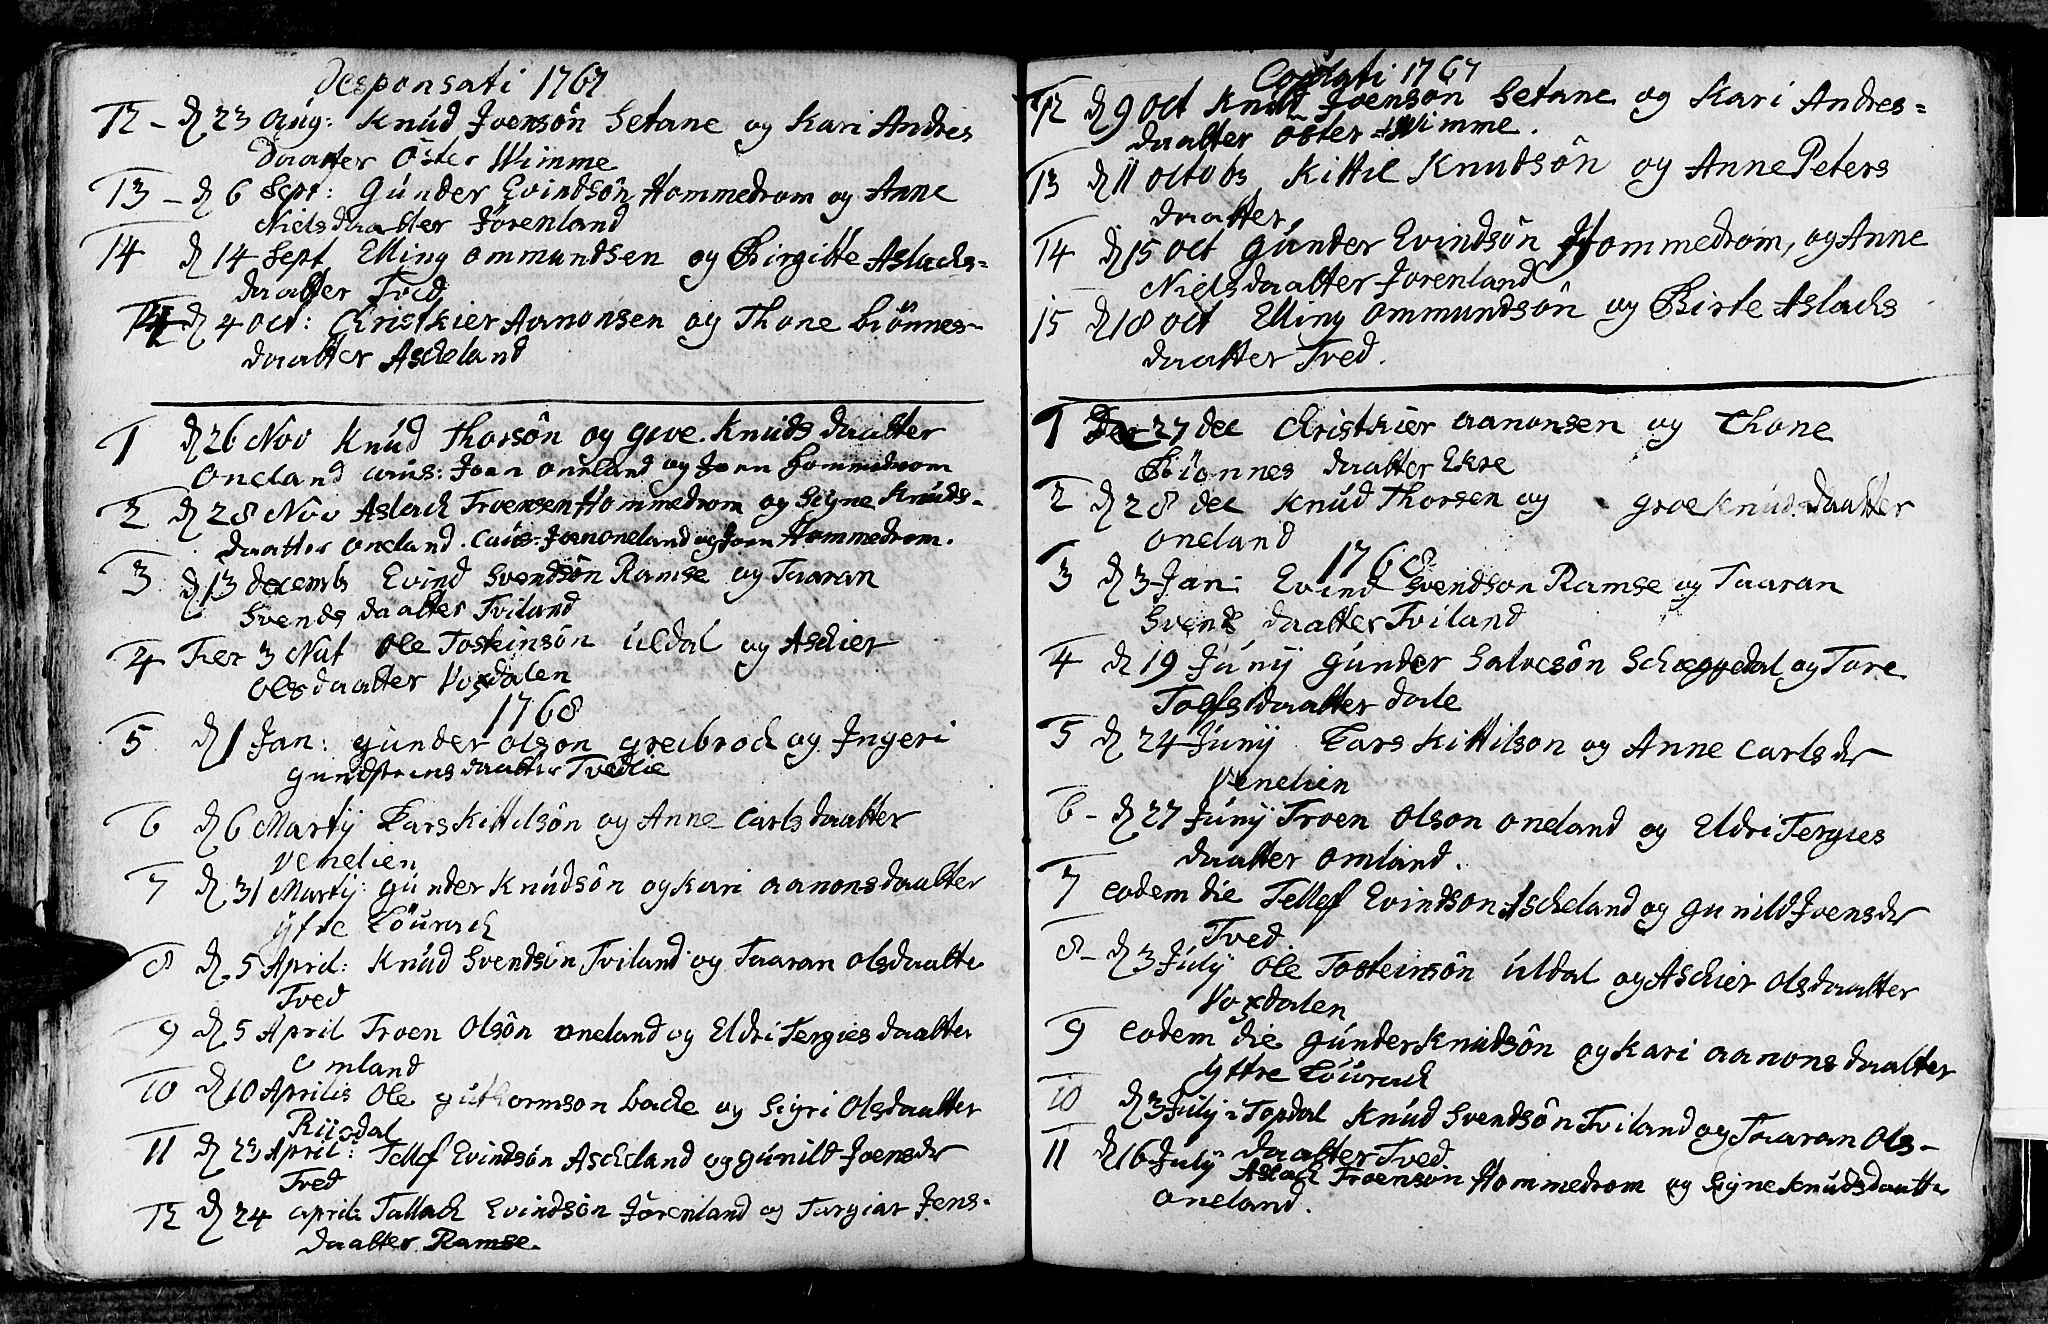 Desponsati 1767
12 - d 23 Aug: Knud Joensøn Setane og Kari Andres
daatter Öster Wimme
13 - d 6 Sept: Gunder Evindsøn Hommedrom og Anne
Nielsdaatter Jörenland
14 d 14 Sept Elling Ommundsen og Birgitte Aslachs=
daatter Tved
d 4 Oct: Christkier Aanonsen og Thone Biönnes-
daatter Ascheland
1 d 26 Nov Knud Thorsøn og Groe Knudsdaatter
Oneland caus: Joen Oneland og Joen Hommedrom
2 d 28 Nov Aslach Troensen Hommedrom og Signe Knuds-
daatter Oneland. Caus Joen Oneland og Joen Hommedrom.
3 d 13 Decemb Evind Svendsøn Ramse og Taaran
Svends daatter Tviland
4 Fer 3 Nat Ole Tosteinsøn Uldal og Aschier
Olsdaatter Voxdalen
1768
5 d 1 Jan: Gunder Olson Greibrock og Jngeri
Gundsteensdaatter Tvedlie
6 d 6 Martij Lars Kittilsøn og Anne Carlsdaatter
Venelien
7 d 31 Martij: Gunder Knudsøn og Kari Aanonsdaatter
ytre Löurach
8 d. 5 April: Knud Svendsøn Tviland og Taaran Olsdaatter
Tved
9 d 5 April Troen Olsøn Oneland og Eldri Tergiesdaatter
Omland
10 d 10 Aprilis Ole Guthormson Bache og Sigri Olsdaatter
Riisdal
11 d 23 April: Tellef Evindsøn Ascheland og Gunild Joensdr
Tved
12 d 24 April: Tallach Evindsøn Jörenland og Targiar Jens-
daatter Ramse.
Copulati 1767
12 d 9 Oct Knud Joensøn Setane og Kari Andres=
daatter Öster Wimme.
13 d 11 Octobs Kittil Knudsøn og Anne Peters
daatter
14 d 15 Oct Gunder Evindsøn Hommedrom, og Anne
Nielsdaatter Jorenland
15 d 18 Oct Elling Ommundsøn og Birte Aslachs
daatter Tved.
1 Der 27 Dec Christkier Aanonsen og Thone
Biönnes daatter Ekse
2 d 28 Dec Knud Thorsen og Groe Knudsdaatter
Oneland
1768
3 d 3 Jan: Evind Svendson Ramse og Taaran
Svends daatter Tviland
4 d 19 Junij Gunder Salvesøn Schæggedal og Tore
Tagesdaatter Dale
5 d 24 Junij Lars Kittilson og Anne Carlsdr
Venelien
6 - d 27 Junij Troen Olson Oneland og Eldri Tergies
daatter Omland.
7 eodem die Tellef Evindson Ascheland og Gunild Joensdr
Tved
8 - d 3 Julij Ole Tosteinsøn Uldal og Aschier Olsdaatter
Voxdalen
9 eodem die Gunder Knudsøn og Kari Aanonsdaatter
yttre Löurach
10 d 3 Julij i Topdal Knud Svendsøn Tviland og Taaran Ols-
daatter Tved
11 d 16 Julij Aslach Troensøn Hommedrom og Signe Knudsdaatter
Oneland.